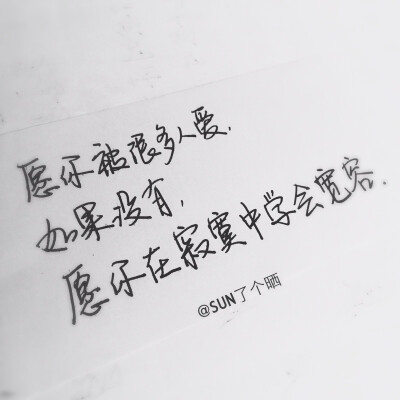 愿你被很多人爱.
如果没有,
愿你在寂寞中学会宽容.
@SUN了个晒